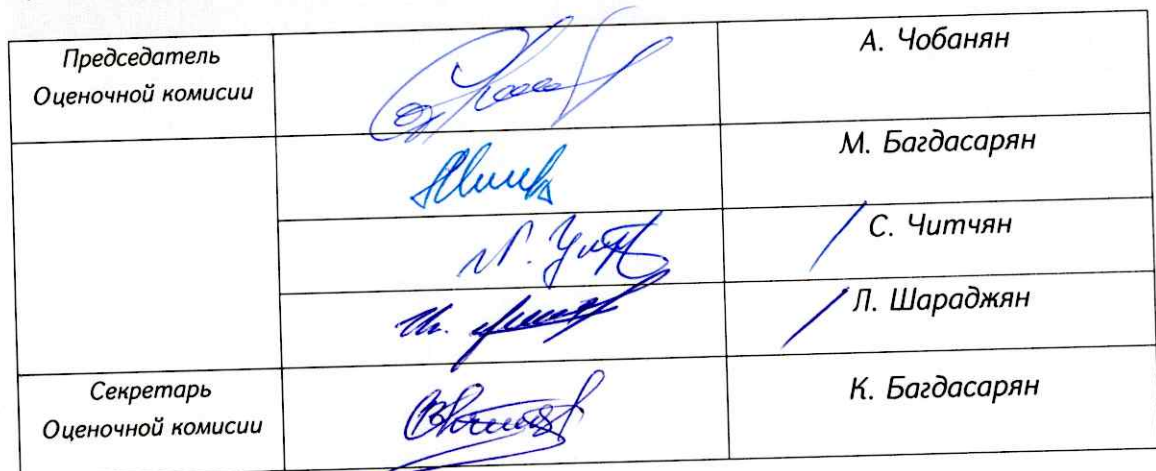 Председатель
Оценочной комисии
А. Чобанян
М. Багдасарян
С. Читчян
Л. Шараджян
Секретарь
Оценочной комисии
К. Багдасарян